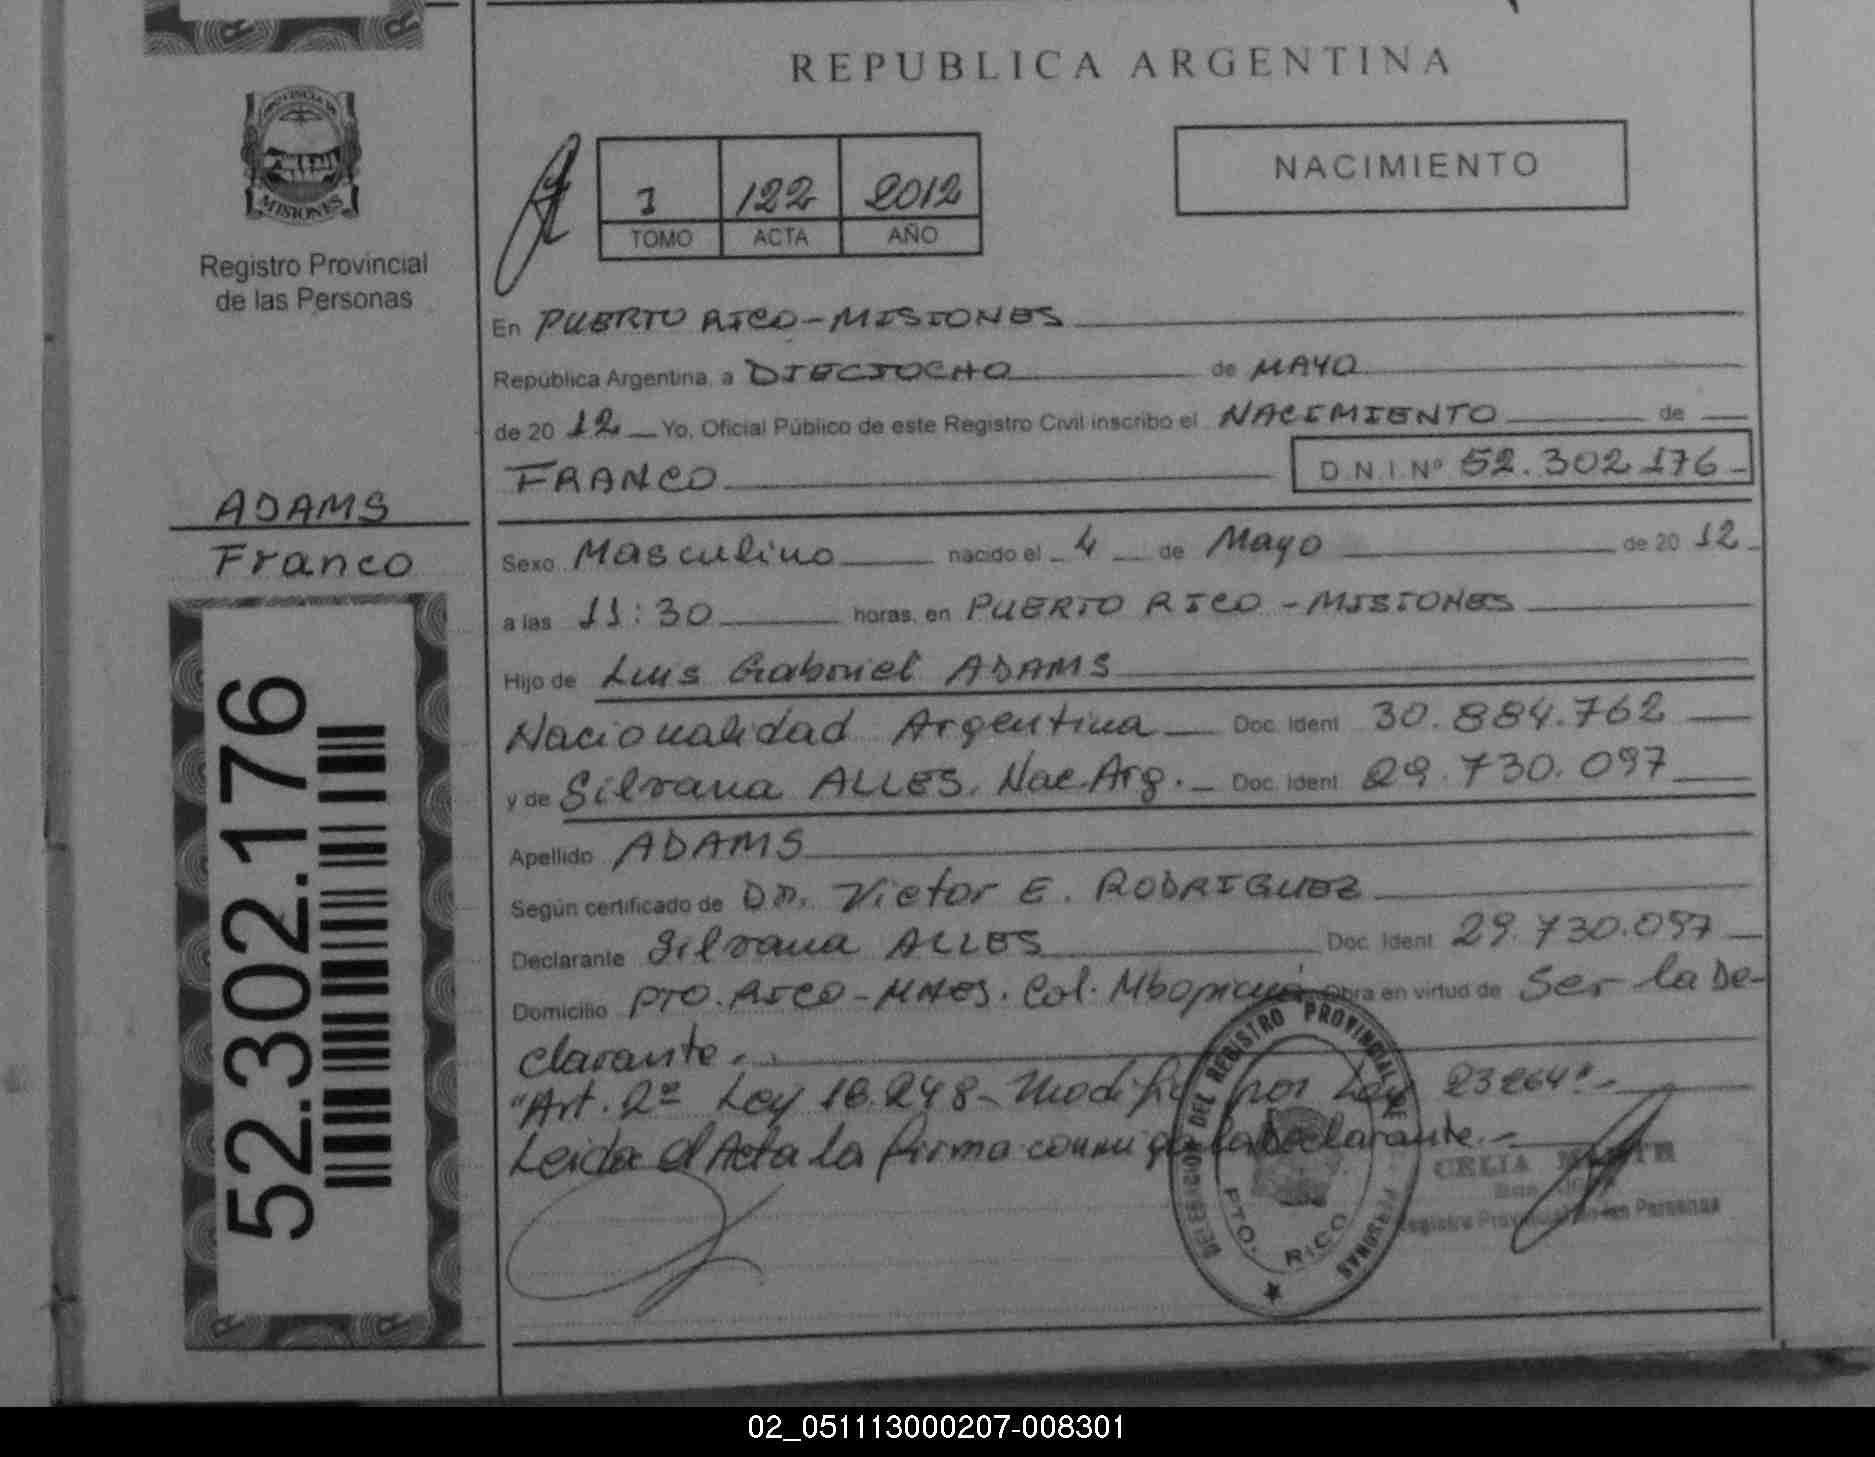 REPUBLICA ARGENTINA
PROVINCIA DE
MISIONES
Registro Provincial
de las Personas
1 122 2012
TOMO ACTA AÑO
NACIMIENTO
En PUERTO RICO - MISIONES
República Argentina, a DIECIOCHO de MAYO
de 2012 Yo, Oficial Público de este Registro Civil inscribo el NACIMIENTO de
FRANCO D.N.I. Nº 52.302.176
ADAMS
Franco
Sexo Masculino nacido el 4 de Mayo de 2012
a las 11:30 horas, en PUERTO RICO - MISIONES
Hijo de Luis Gabriel ADAMS
Nacionalidad Argentina Doc. Ident. 30.884.762
y de Silvana ALLES. Nac. Arg. Doc. Ident. 29.730.097
Apellido ADAMS
Según certificado de DR. Victor E. RODRIGUEZ
Declarante Silvana ALLES Doc. Ident. 29.730.097
Domicilio PTO. RICO - MNES. Col. Obra en virtud de Ser la De-
clarante.
"Art. 2º Ley 18.248 - Modific por Ley 23264"-
Leida el Acta la firma conmigo la Declarante.-
52.302.176
DELEGACION DEL REGISTRO PROVINCIAL DE PERSONAS
PTO. RICO
CELIA
Registro Provincial de las Personas
02_051113000207-008301